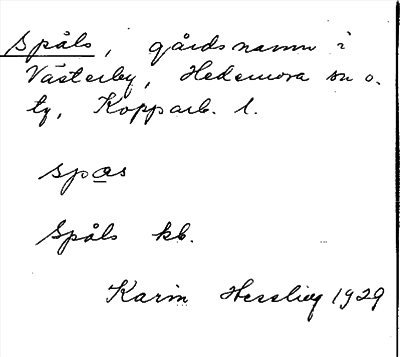 Spåls, gårdsnamn i
Västerby, Hedemora sn o.
tg, Kopparb. l.
spɑs
Spåls kb.
Karin Hessling 1929